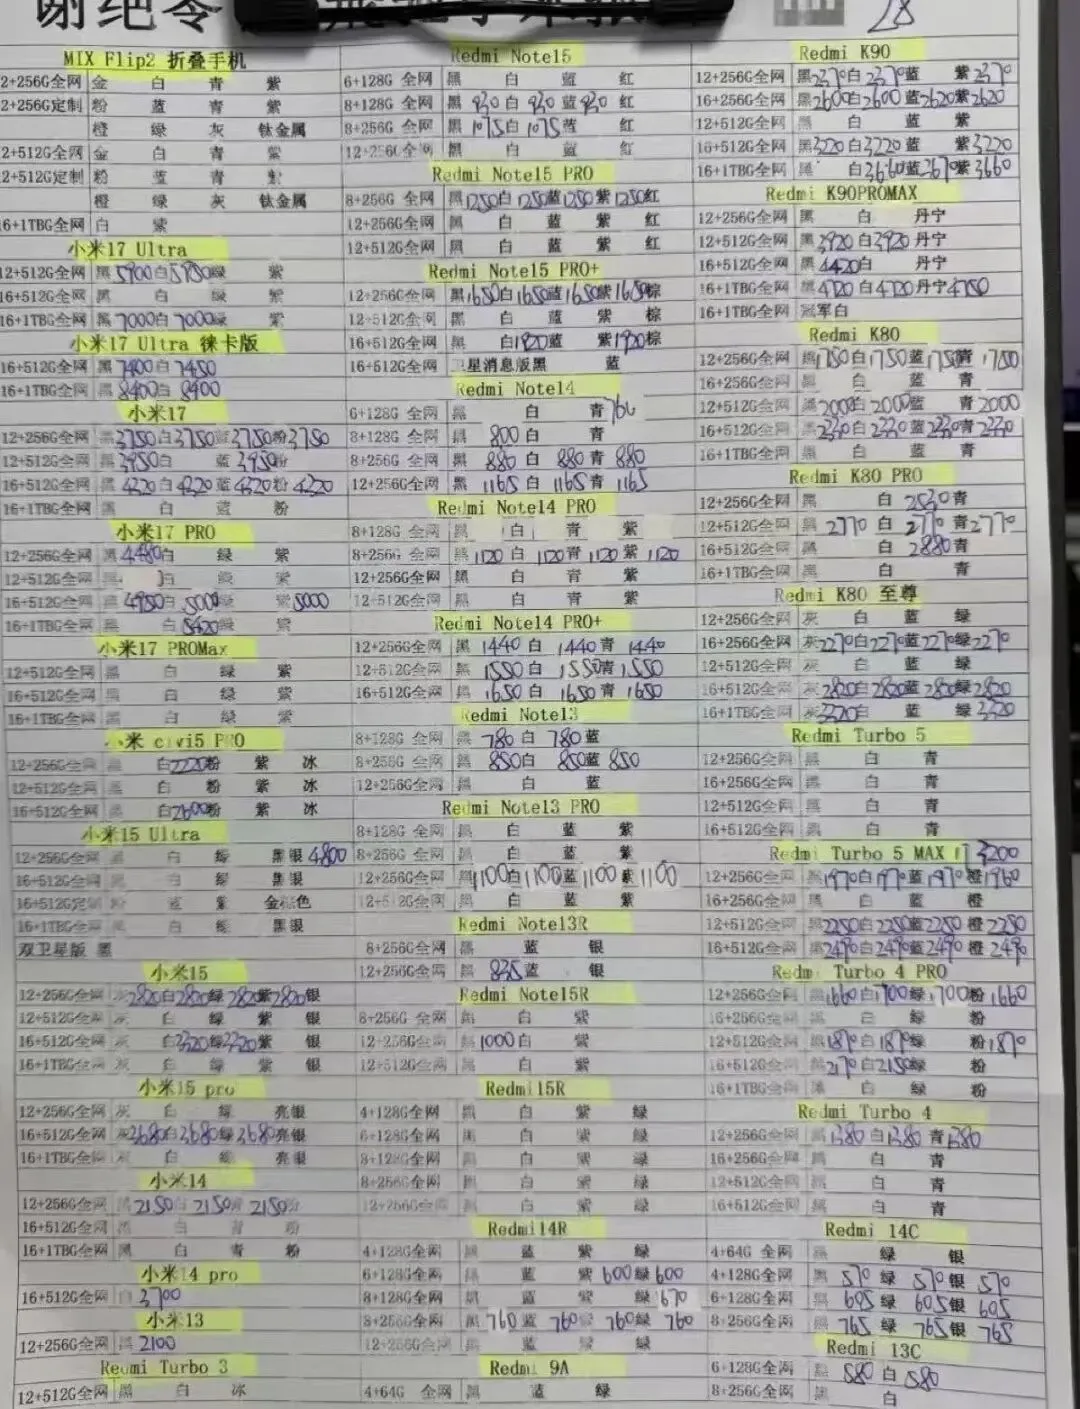 谢绝零
28
MIX Flip2 折叠手机
2+256G全网 金 白 青 紫
2+256G定制 粉 蓝 青 紫
橙 绿 灰 钛金属
2+512G全网 金 白 青 紫
2+512G定制 粉 蓝 青 紫
橙 绿 灰 钛金属
16+1TBG全网 白 紫
小米17 Ultra
12+512G全网 黑5900白5950绿 紫
16+512G全网 黑 白 绿 紫
16+1TBG全网 黑7000白7000绿 紫
小米17 Ultra 徕卡版
16+512G全网 黑7400白7450
16+1TBG全网 黑8400白8400
小米17
12+256G全网 黑3750白3750蓝3750粉3750
12+512G全网 黑3950白 蓝3950粉
16+512G全网 黑4220白4220蓝4220粉4220
16+1TBG全网 黑 白 蓝 粉
小米17 PRO
12+256G全网 黑4480白 绿 紫
12+512G全网 黑 白 绿 紫
16+512G全网 黑4950白5000绿 紫5000
16+1TBG全网 黑 白5420绿 紫
小米17 PROMax
12+512G全网 黑 白 绿 紫
16+512G全网 黑 白 绿 紫
16+1TBG全网 黑 白 绿 紫
小米 civi5 PRO
12+256G全网 白2220粉 紫 冰
12+512G全网 白 粉 紫 冰
16+512G全网 白2600粉 紫 冰
小米15 Ultra
12+256G全网 黑 白 绿 黑银4800
16+512G全网 黑 白 绿 黑银
16+512G定制 粉 蓝 紫 金棕色
16+1TBG全网 黑 白 绿 黑银
双卫星版 黑
小米15
12+256G全网 灰2820白2820绿2820紫2820银
12+512G全网 灰 白 绿 紫 银
16+512G全网 灰 白3320绿3320紫 银
16+1TBG全网 灰 白 绿 紫 银
小米15 pro
12+256G全网 灰 白 绿 亮银
16+512G全网 灰3680白3680绿3680亮银
16+1TBG全网 灰 白 绿 亮银
小米14
12+256G全网 黑2150白2150青2150粉
16+512G全网 黑 白 青 粉
16+1TBG全网 黑 白 青 粉
小米14 pro
16+512G全网 白3700
小米13
12+256G全网 黑2100
Redmi Turbo 3
12+512G全网 黑 白 冰
Redmi Note15
6+128G 全网 黑 白 蓝 红
8+128G 全网 黑930白930蓝930红
8+256G 全网 黑1075白1075蓝 红
12+256G全网 黑 白 蓝 红
Redmi Note15 PRO
8+256G 全网 黑1250白1250蓝1250紫1250红
12+256G全网 黑 白 蓝 紫 红
12+512G全网 黑 白 蓝 紫 红
Redmi Note15 PRO+
12+256G全网 黑1650白1650蓝1650紫1650棕
12+512G全网 黑 白 蓝 紫 棕
16+512G全网 黑 白1920蓝 紫1920棕
16+512G全网 卫星消息版黑 蓝
Redmi Note14
6+128G 全网 黑 白 青760
8+128G 全网 黑 800白 青
8+256G 全网 黑 880白 880青 880
12+256G全网 黑 1165白 1165青 1165
Redmi Note14 PRO
8+128G 全网 黑 白 青 紫
8+256G 全网 黑1120白1120青1120紫1120
12+256G全网 黑 白 青 紫
12+512G全网 黑 白 青 紫
Redmi Note14 PRO+
12+256G全网 黑1440白1440青1440
12+512G全网 黑1550白1550青1550
16+512G全网 黑1650白1650青1650
Redmi Note13
8+128G 全网 黑780白780蓝
8+256G 全网 黑850白850蓝850
12+256G全网 黑 白 蓝
Redmi Note13 PRO
8+128G 全网 黑 白 蓝 紫
8+256G 全网 黑 白 蓝 紫
12+256G全网 黑1100白1100蓝1100紫1100
12+512G全网 黑 白 蓝 紫
Redmi Note13R
8+256G全网 黑 蓝 银
12+256G全网 黑835蓝 银
Redmi Note15R
8+256G 全网 黑 白 紫
12+256G全网 黑1000白 紫
12+512G全网 黑 白 紫
Redmi15R
4+128G全网 黑 白 紫 绿
6+128G全网 黑 白 紫 绿
8+128G全网 黑 白 紫 绿
8+256G全网 黑 白 紫 绿
12+256G全网 黑 白 紫 绿
Redmi14R
4+128G全网 黑 蓝 紫 绿
6+128G全网 黑 蓝 紫600绿600
8+128G全网 黑 蓝 紫 绿670
8+256G全网 黑760蓝760紫760绿760
12+256G全网 黑 蓝 紫 绿
Redmi 9A
4+64G 全网 黑 蓝 绿
Redmi K90
12+256G全网 黑2370白2370蓝 紫2370
16+256G全网 黑2600白2600蓝2620紫2620
12+512G全网 黑 白 蓝 紫
16+512G全网 黑3220白3220蓝 紫3220
16+1TBG全网 黑 白3660蓝3670紫3660
Redmi K90PROMAX
12+256G全网 黑 白 丹宁
12+512G全网 黑3920白3920丹宁
16+512G全网 黑4420白 丹宁
16+1TBG全网 黑4720白4720丹宁4750
16+1TBG全网 冠军白
Redmi K80
12+256G全网 黑1750白1750蓝1750青1750
16+256G全网 黑 白 蓝 青
12+512G全网 黑2000白2000蓝 青2000
16+512G全网 黑2230白2230蓝2230青2230
16+1TBG全网 黑 白 蓝 青
Redmi K80 PRO
12+256G全网 黑 白2530青
12+512G全网 黑2770白2770青2770
16+512G全网 黑 白2880青
16+1TBG全网 黑 白 青
Redmi K80 至尊
12+256G全网 灰 白 蓝 绿
16+256G全网 灰2270白2270蓝2270绿2270
12+512G全网 灰 白 蓝 绿
16+512G全网 灰2820白2820蓝2820绿2820
16+1TBG全网 灰3320白 蓝 绿3320
Redmi Turbo 5
12+256G全网 黑 白 青
16+256G全网 黑 白 青
12+512G全网 黑 白 青
16+512G全网 黑 白 青
Redmi Turbo 5 MAX 3200
12+256G全网 黑1970白1970蓝1970橙1960
16+256G全网 黑 白 蓝 橙
12+512G全网 黑2250白2250蓝2250橙2250
16+512G全网 黑2490白2490蓝2490橙2490
Redmi Turbo 4 PRO
12+256G全网 黑1660白1700绿1700粉1660
16+256G全网 黑 白 绿 粉
12+512G全网 黑1870白1870绿 粉1870
16+512G全网 黑2170白2150绿 粉
16+1TBG全网 黑 白 绿 粉
Redmi Turbo 4
12+256G全网 黑1380白1380青1380
16+256G全网 黑 白 青
12+512G全网 黑 白 青
16+512G全网 黑 白 青
Redmi 14C
4+64G 全网 黑 绿 银
4+128G全网 黑 570绿 570银 570
6+128G全网 黑 605绿 605银 605
8+256G全网 黑 765绿 765银 765
Redmi 13C
6+128G全网 黑580白580
8+256G全网 黑 白